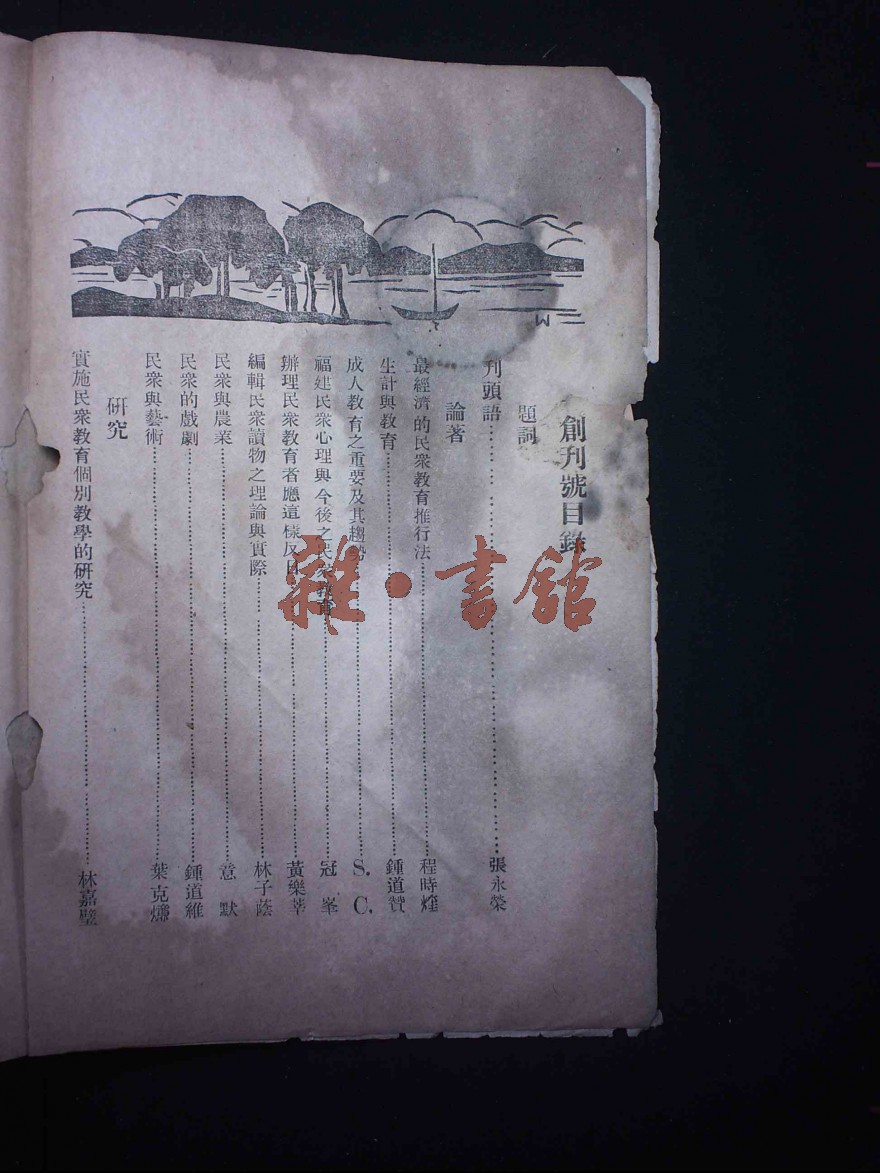 創刊號目錄
題詞
刊頭語…………張永榮
論著
最經濟的民衆教育推行法…………程時煃
生計與教育…………鍾道贊
成人教育之重要及其趨勢…………S. C.
福建民衆心理與今後之民衆教育…………冠峯
辦理民衆教育者應這樣反日…………黃樂莘
編輯民衆讀物之理論與實際…………林子蔭
民衆與農業…………意默
民衆的戲劇…………鍾道維
民衆與藝術…………葉克
研究
實施民衆教育個別教學的研究…………林嘉璧
雜·書館